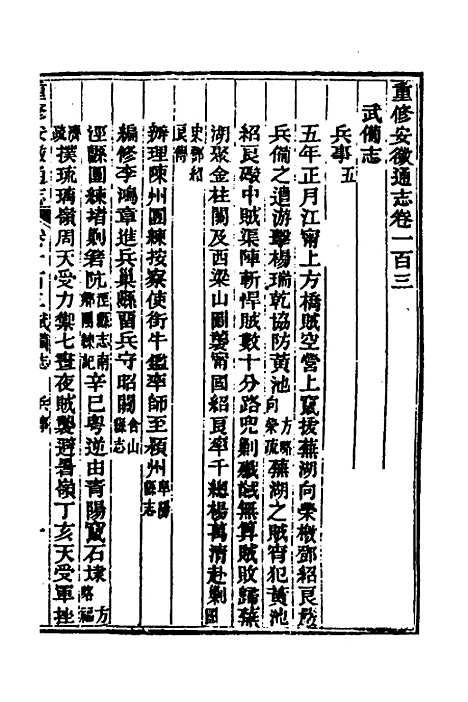 重修安徽通志卷一百三
武備志
兵事五
五年正月江甯上方橋賊空營上竄援蕪湖向榮檄鄧紹良嚴
兵備之遣游擊楊瑞乾協防黃池向榮疏方略蕪湖之賊宵犯黃池
紹良礮中賊渠陣斬悍賊數十分路兜剿殲賊無算賊敗歸蕪
湖聚金柱關及西梁山圖襲甯國紹良率千總楊萬清赴剿國
史鄧紹良傳
辦理陳州團練按察使銜牛鑑率師至潁州阜陽縣志
編修李鴻章進兵巢縣留兵守昭關含山縣志
涇縣團練堵剿箬阬涇縣志南鄉團練記辛巳粵逆由青陽竄石埭方略福
濟疏撲琉璃嶺周天受力禦七晝夜賊襲避暑嶺丁亥天受軍挫
重修安徽通志 卷一百三 武備志 兵事 一